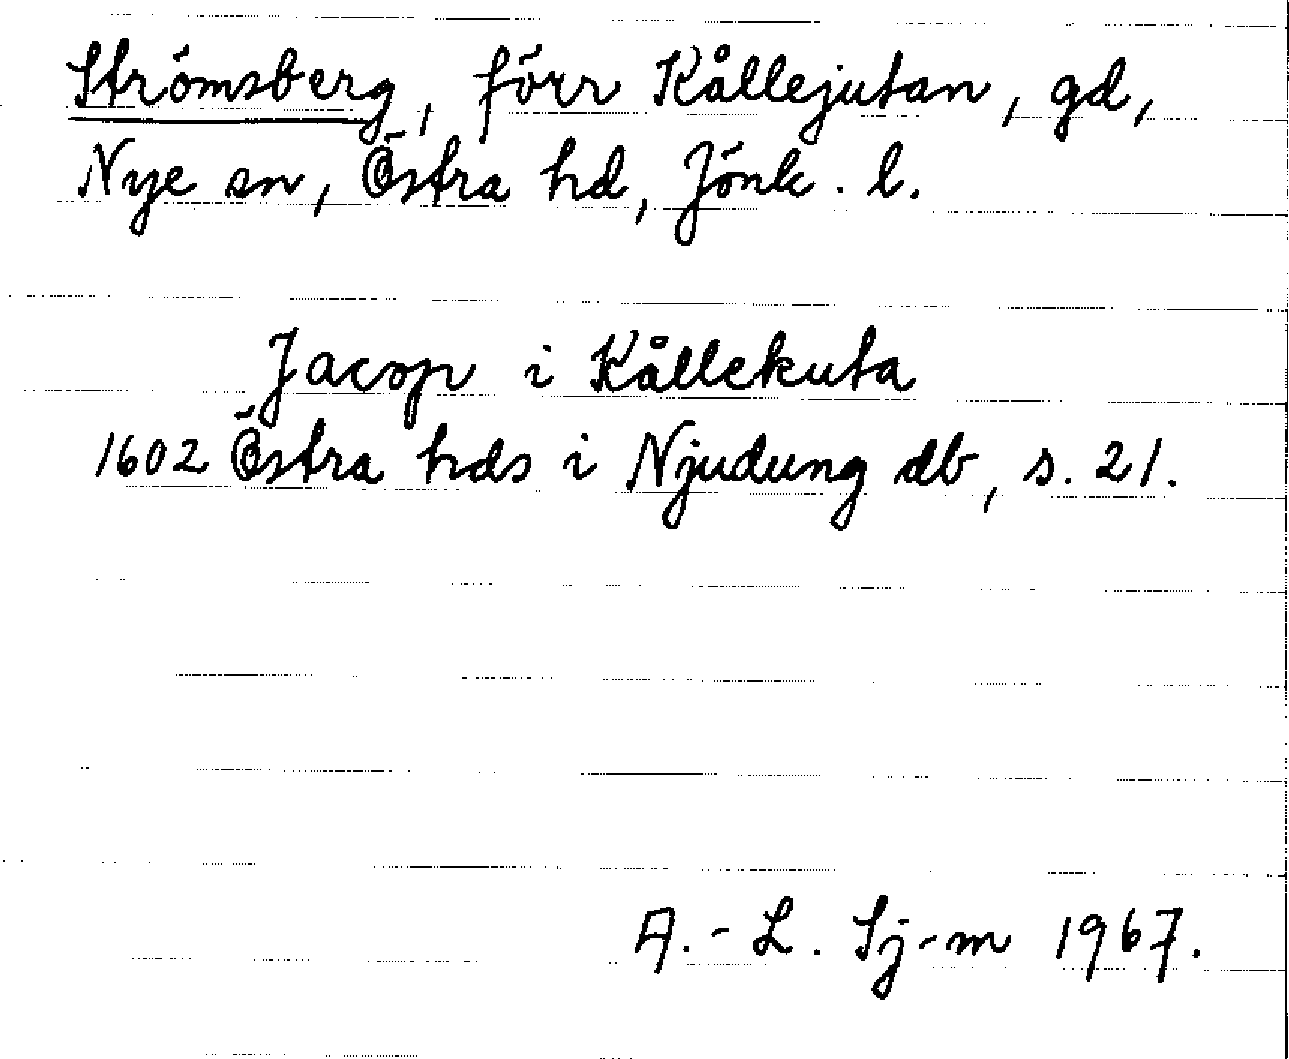 Strömsberg, förr Kållejutan, gd,
Nye sn, Östra hd, Jönk. l.
Jacop i Kållekuta
1602 Östra hds i Njudung db, s. 21.
A.-L. Sj-m 1967.